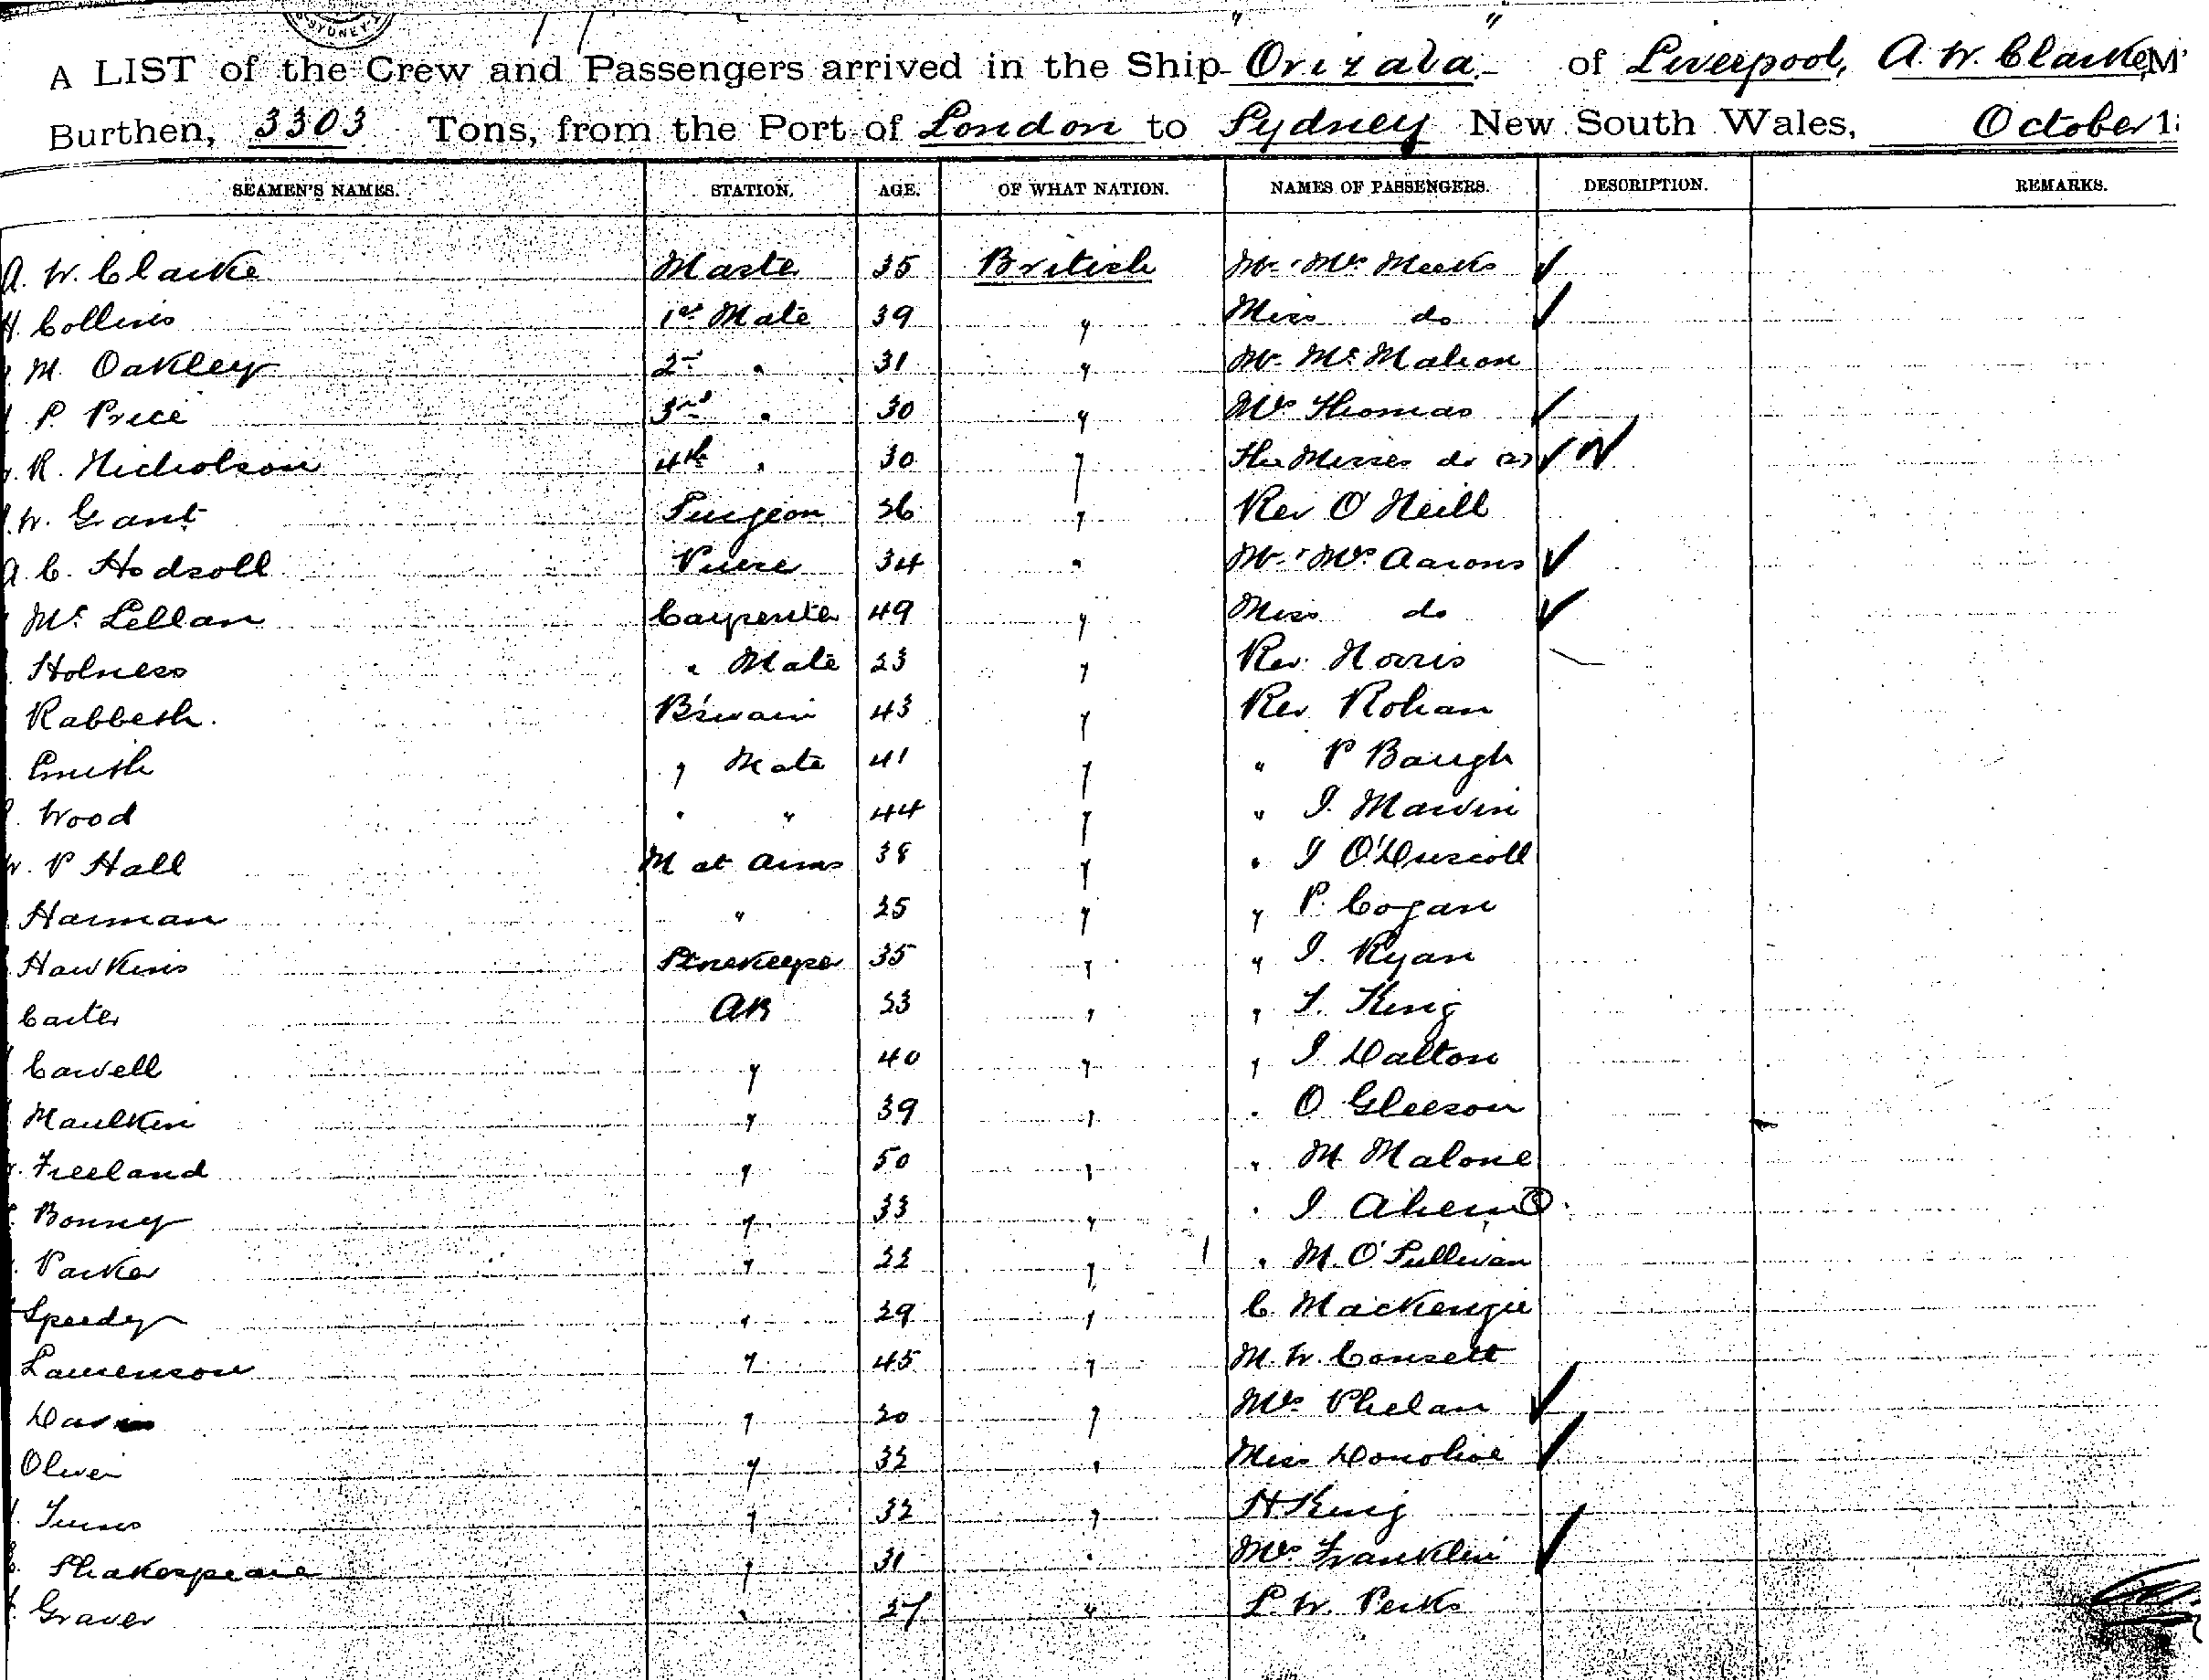 SYDNEY
A LIST of the Crew and Passengers arrived in the Ship "Orizaba" of Liverpool, A. W. Clarke, M
Burthen, 3303 Tons, from the Port of London to Sydney New South Wales, October 1
SEAMEN'S NAMES. STATION. AGE. OF WHAT NATION. NAMES OF PASSENGERS. DESCRIPTION. REMARKS.
A. W. Clarke Master 35 British Mr. & Mrs Meeks ✓
H. Collins 1st Mate 39 " Miss do ✓
M. Oakley 2nd " 31 " Mr. McMahon
P. Price 3rd " 30 " Mrs Thomas ✓
R. Nicholson 4th " 30 " The Misses do (2) ✓
W. Grant Surgeon 26 " Rev O'Neill
A. C. Hodsoll Purser 34 " Mr. & Mrs. Aarons ✓
McLellan Carpenter 49 " Miss do ✓
Holness " Mate 23 " Rev. Norris
Rabbeth. B'swain 43 " Rev Rohan
Smith " Mate 41 " " P Baugh
Wood " " 44 " " J. Marvin
W. P Hall M at Arms 38 " " J O'Driscoll
Harman " 25 " " P. Cogan
Hawkins Storekeeper 35 " " J. Ryan
Carter AB 23 " " T. King
Cawell " 40 " " J Dalton
Maulkin " 39 " " O Gleeson
Freeland " 50 " " M Malone
Bonney " 33 " " J Ahern
Parker " 22 " " M. O'Sullivan
Speedy " 29 " C Mackenzie
Laurenson " 45 " M. W. Consett
Davis " 20 " Mrs Phelan ✓
Oliver " 32 " Miss Donohoe ✓
" 32 " H King
Shakespeare " 31 " Mrs Franklin ✓
Graver " 27 " S. W. Perks